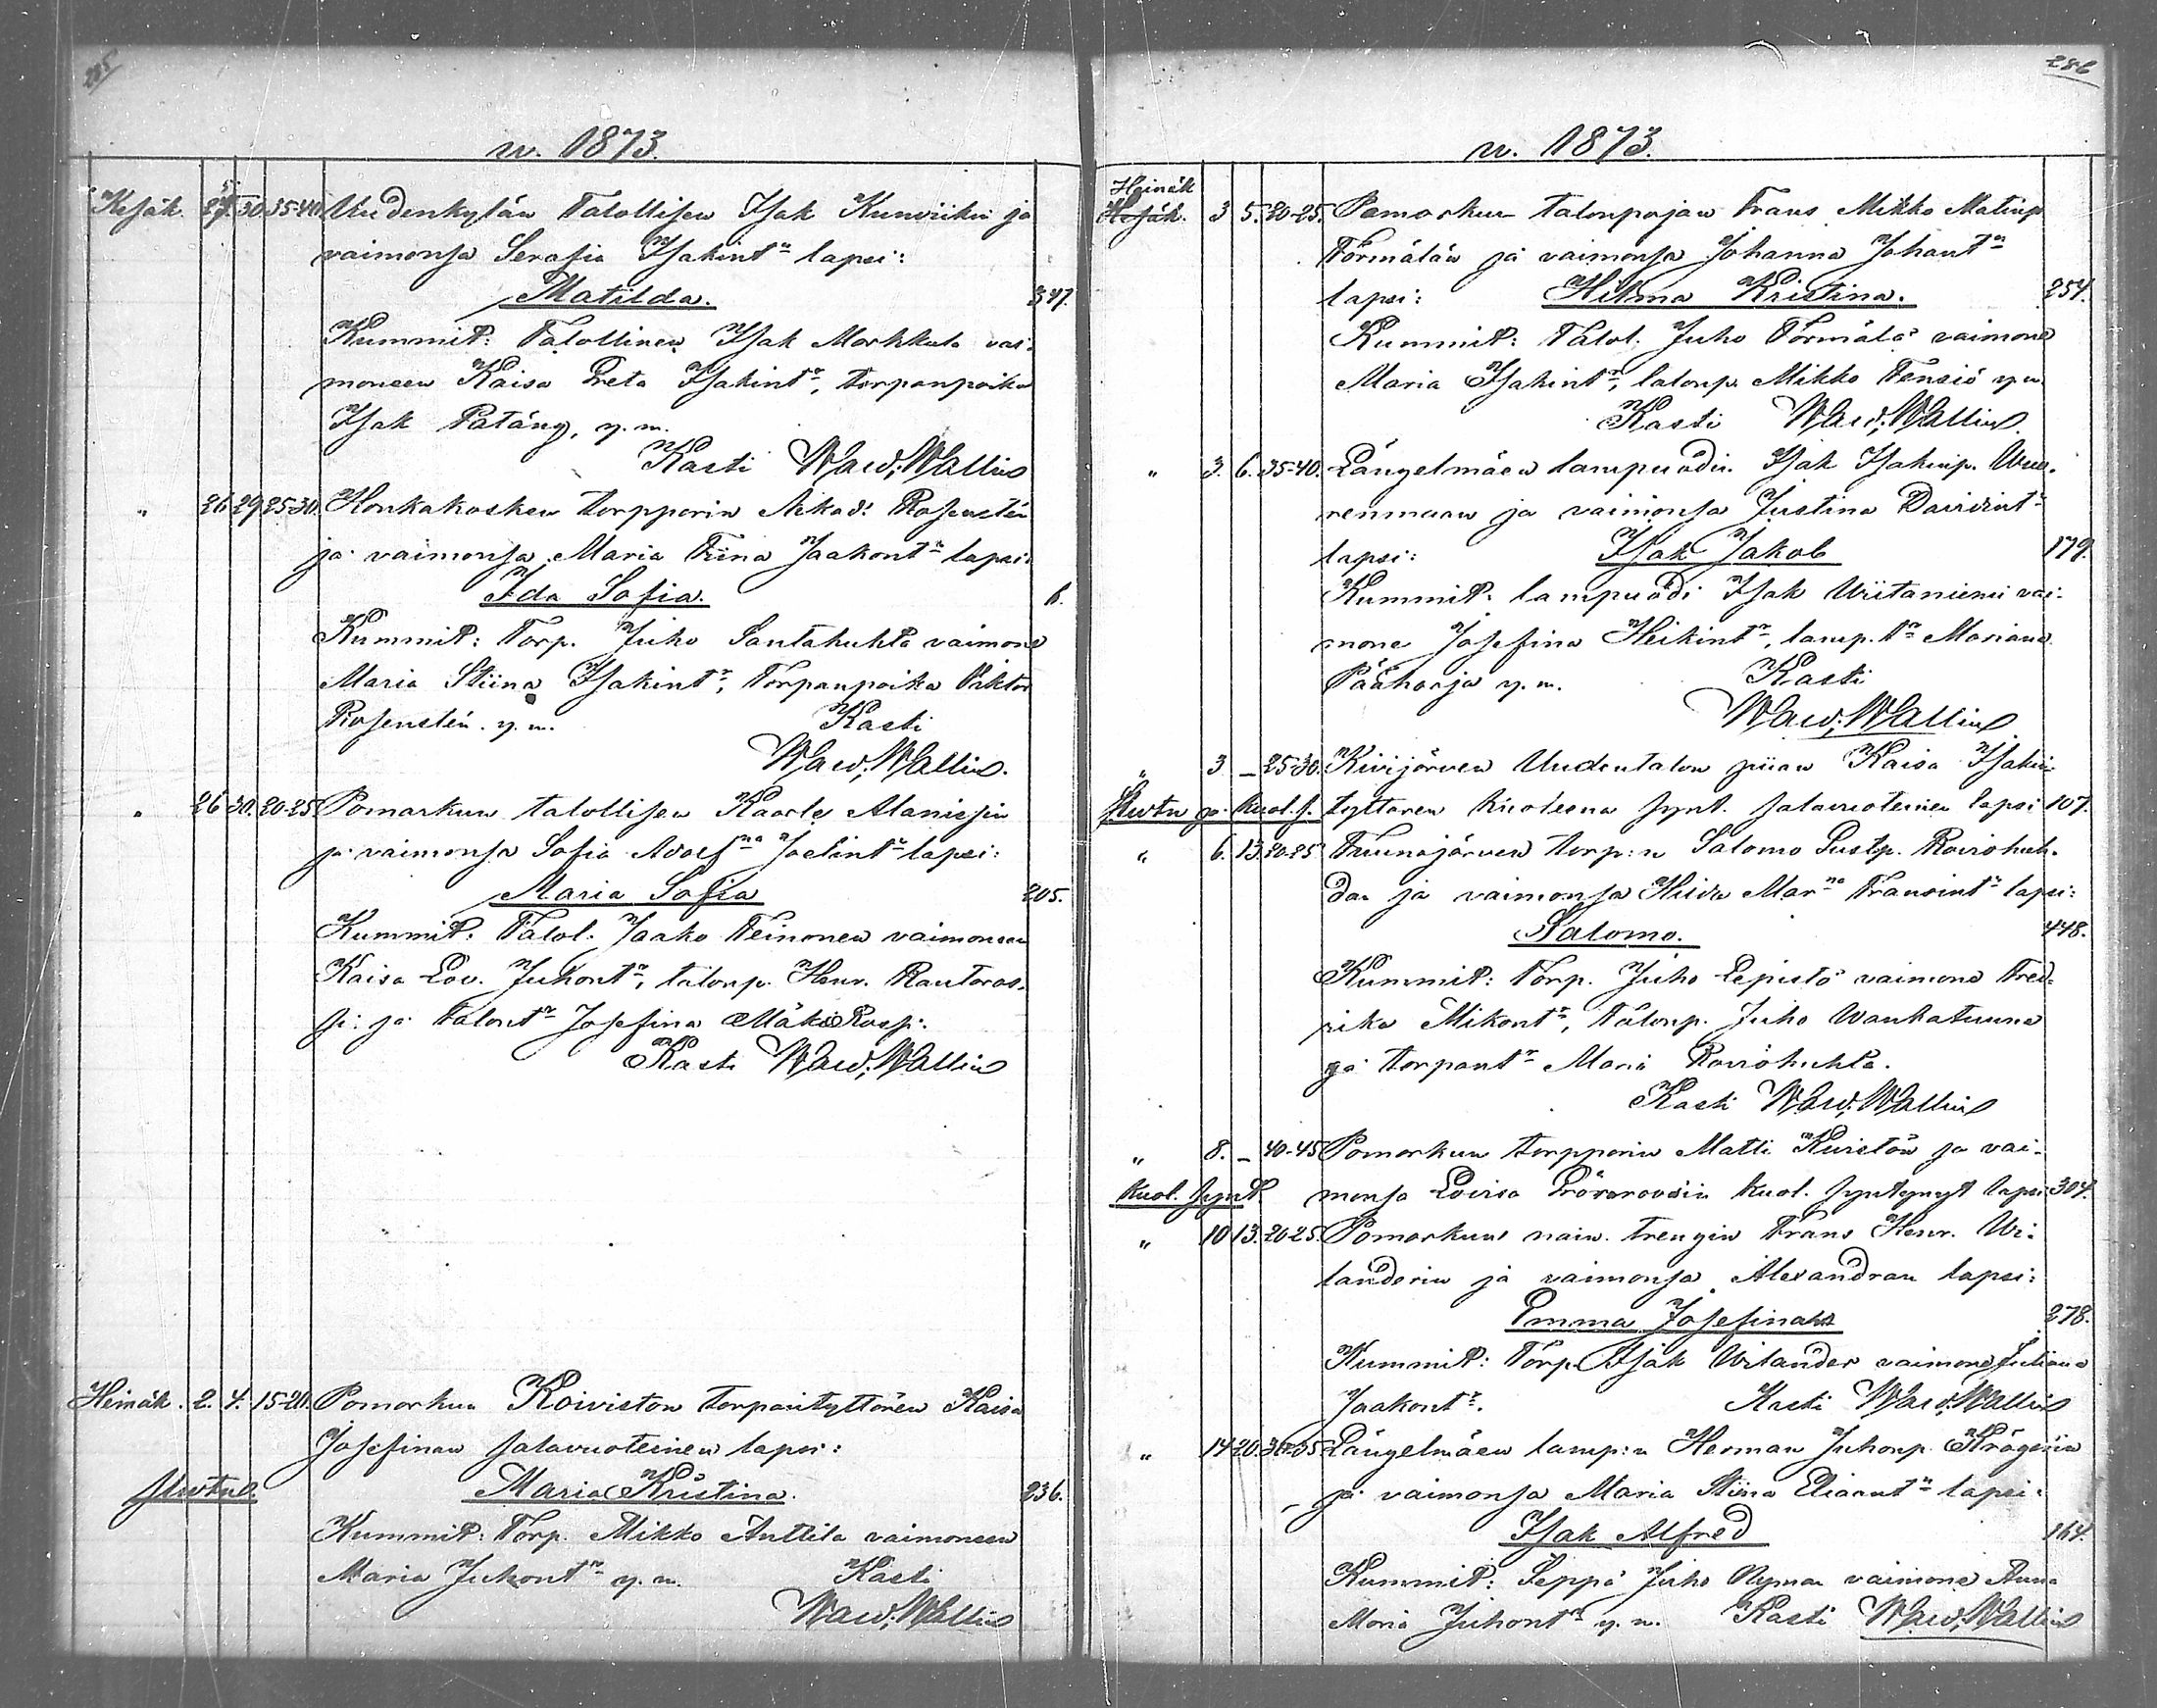 285
w. 1873.
Kesäk. 25. 30. 35-40. Uudenkylän Talollisen Isak Kunviikin ja
vaimonsa Serafia Isakint:n lapsi:
Matilda. 347.
Kummit: Talollinen Isak Markkula vai-
moneen Kaisa Greta Isakint:r, torpanpoika
Isak Patäng, y. m.
Kasti Waw. Wallin
" 26 29 25-30. Honkakosken torpparin Rosenstén
ja vaimonsa Maria Tiina Jaakont:n lapsi:
Ida Sofia. 6.
Kummit: Torp. Juho Santahuhta vaimone
Maria Stiina Isakint:r, Torpanpoika Viktor
Rosenstén. y. m. Kasti
Waw. Wallin.
" 26 30. 20-25 Pomarkun talollisen Kaarle Alanissin
ja vaimonsa Sofia Adolf:na Joelint:n lapsi:
Maria Sofia 205.
Kummit: Talol. Jaako Teinonen vaimoneen
Kaisa Lov. Juhont:r, talonp. Henr. Rautaros-
si ja talont:r Josefina Mäki Rossi.
Kasti Waw. Wallin
Heinäk. 2. 4. 15-20. Pomarkun Koiviston torparityttären Kaisa
Josefinan salavuoteinen lapsi:
Äwtul. Maria Kristina. 236.
Kummit: Torp. Mikko Anttila vaimoneen
Maria Juhont:r y. m. Kasti
Waw. Wallin
286
w. 1873.
Heinäk
Kesäk. 3 5. 20-25. Pomarkun talonpojan Frans Mikko Matinp
Törmälän ja vaimonsa Johanna Johant:n
lapsi: Hilma Kristina. 254.
Kummit: Talol. Juho Törmälä vaimone
Maria Isakint:r, talonp. Mikko Tensiö y. m.
Kasti Waw. Wallin.
" 3. 6. 35-40. Längelmäen lampuodin Isak Isakinp. Wuo-
renmaan ja vaimonsa Justina Davidint:n
lapsi: Isak Jakob 179.
Kummit: lampuodi Isak Wiitaniemi vai-
mone Josefina Heikint:r, lamp. t:r Mariana
Pääharja y. m. Kasti
Waw. Wallin
" 3 – 25-30. Kivijärven Uudentalon piian Kaisa Isakin
Äwtu ja Kuol. s. tyttären kuoleena synt. salavuoteinen lapsi 107.
" 6. 13. 20-25 Tuunajärven torp:n Salomo Gustp. Roviohuh-
dan ja vaimonsa Hilda Mar:na Fransint:n lapsi:
Salomo. 448.
Kummit: Torp. Juho Lepistö vaimone Fred-
rika Mikont:r, Talonp. Juho Wanhatuuna
ja torpant:r Maria Roviohuhta.
Kasti Waw. Wallin
" 8. – 40-45 Pomarkun torpparin Matti Kuistön ja vai-
Kuol. synt. monsa Lovisa kuol. syntynyt lapsi 304.
" 10 13. 20-25. Pomarkun naiw. trengin Frans Henr. Wi-
landerin ja vaimonsa Alexandran lapsi:
Emma Josefina 278.
Kummit: Torp. Isak Wilander vaimone Juliana
Jaakont:r. Kasti Waw. Wallin
" 14 20. 30-35 Längelmäen lamp:n Herman Juhonp. Krögerin
ja vaimonsa Maria Stiina Eliaant:n lapsi:
Isak Alfred 164.
Kummit: Seppä Juho Nyman vaimone Anna
Maria Juhont:r y. m. Kasti Waw. Wallin